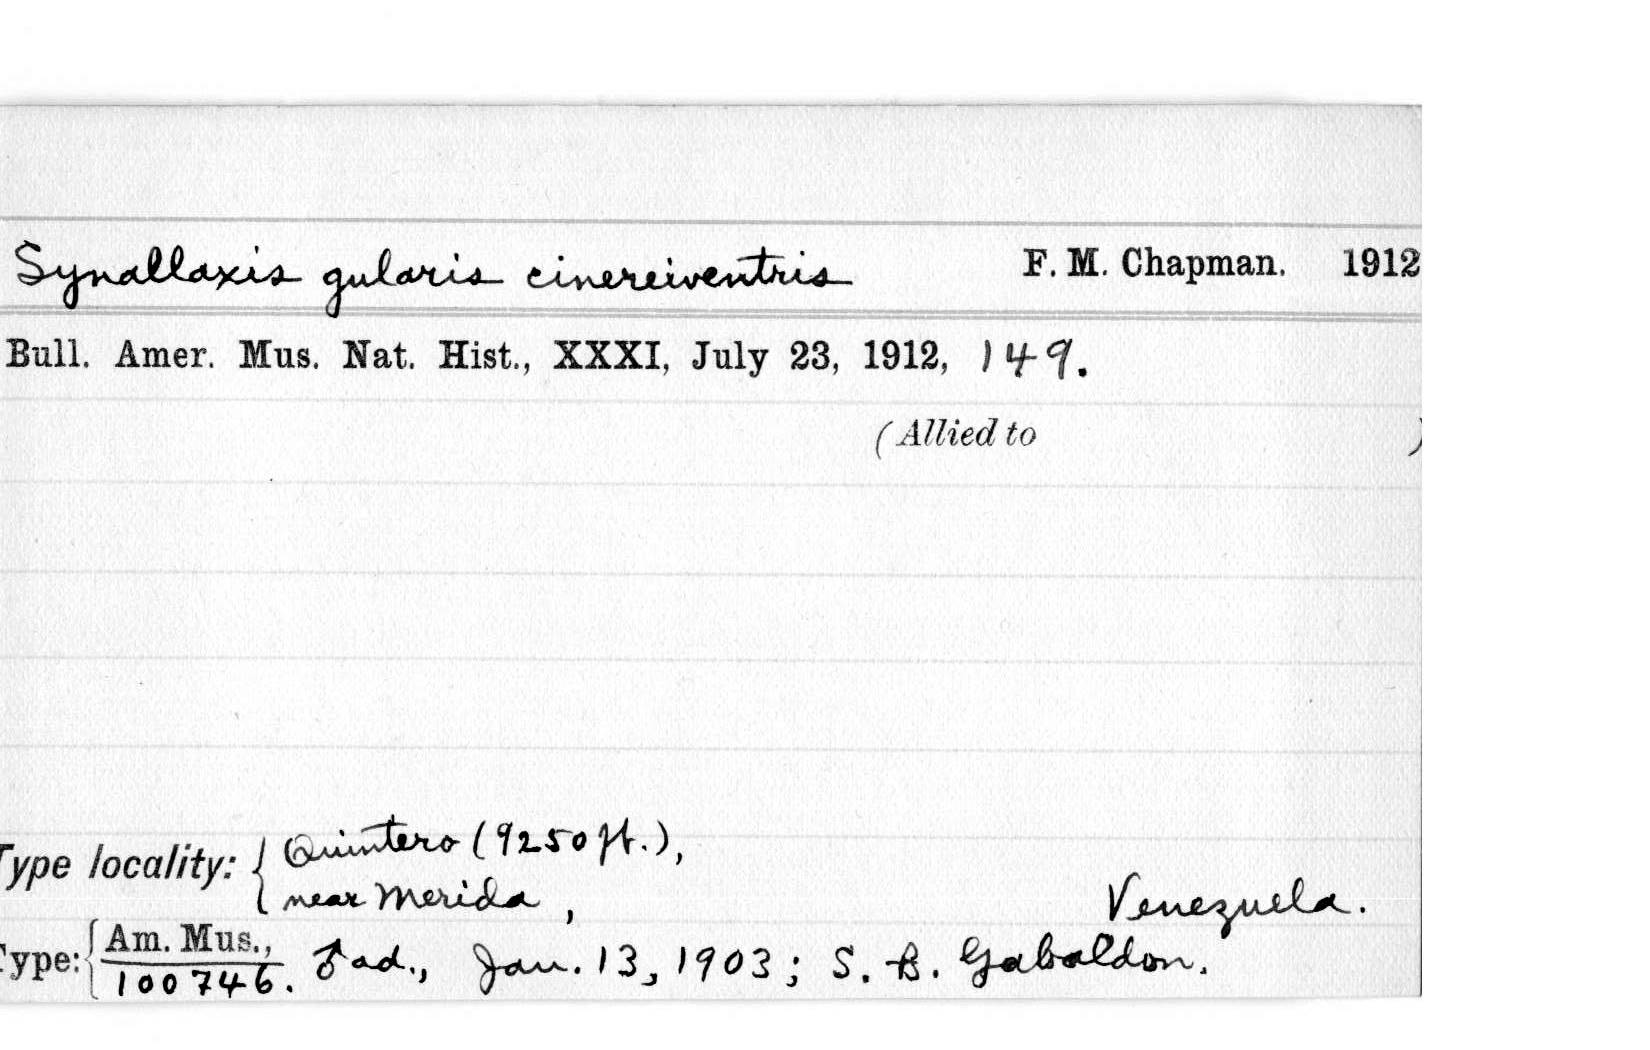 Synallaxis gularis cinereiventris F. M. Chapman. 1912
Bull. Amer. Mus. Nat. Hist., XXXI, July 23, 1912, 149.
(Allied to )
Type locality: { Quintero (9250 ft.),
near Merida, Venezuela.
Type: { Am. Mus.,
100746. ♂ ad., Jan. 13, 1903; S. B. Gabaldon.